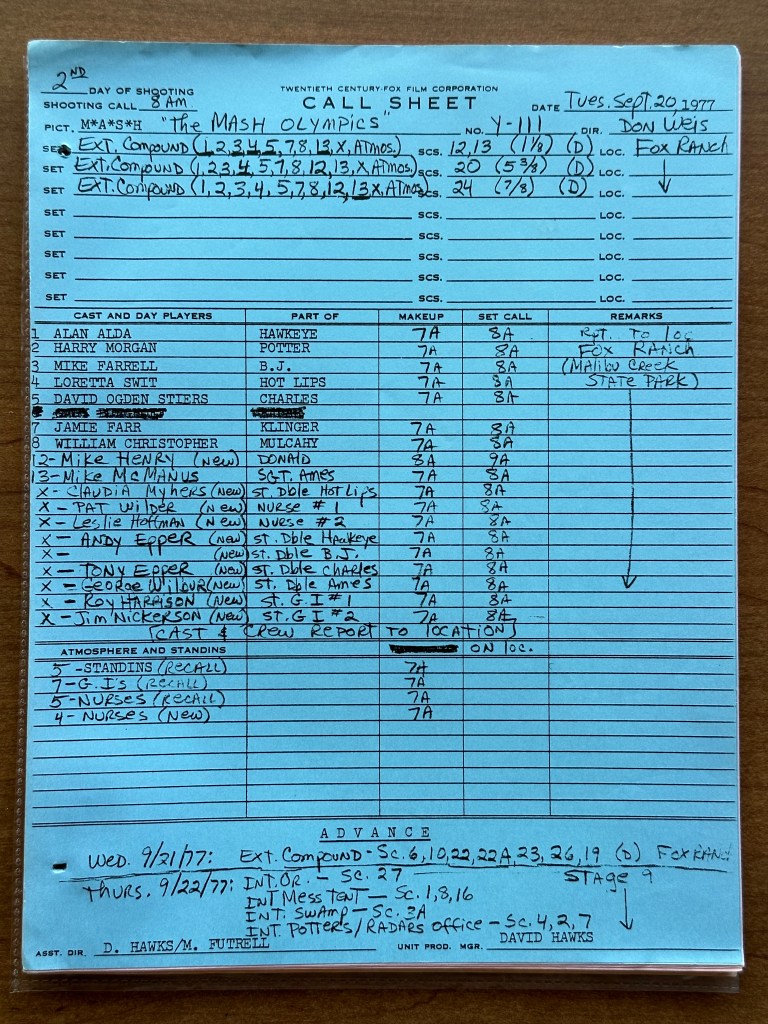 2ND DAY OF SHOOTING
TWENTIETH CENTURY-FOX FILM CORPORATION
SHOOTING CALL 8 AM
CALL SHEET
DATE Tues. Sept. 20, 1977
PICT. M*A*S*H "The MASH OLYMPICS" NO. Y-111 DIR. DON WEIS
SET EXT. COMPOUND (1, 2, 3, 4, 5, 7, 8, 13, X, ATMOS.) SCS. 12, 13 (1 1/8) (D) LOC. FOX RANCH
SET EXT. COMPOUND (1, 2, 3, 4, 5, 7, 8, 12, 13, X, ATMOS.) SCS. 20 (5 3/8) (D) LOC.
SET EXT. COMPOUND (1, 2, 3, 4, 5, 7, 8, 12, 13, X, ATMOS) SCS. 24 (7/8) (D) LOC.
SET SCS. LOC.
SET SCS. LOC.
SET SCS. LOC.
SET SCS. LOC.
SET SCS. LOC.
CAST AND DAY PLAYERS PART OF MAKEUP SET CALL REMARKS
1 ALAN ALDA HAWKEYE 7A 8A RPT. TO LOC
2 HARRY MORGAN POTTER 7A 8A FOX RANCH
3 MIKE FARRELL B.J. 7A 8A (MALIBU CREEK
4 LORETTA SWIT HOT LIPS 7A 8A STATE PARK)
5 DAVID OGDEN STIERS CHARLES 7A 8A
7 JAMIE FARR KLINGER 7A 8A
8 WILLIAM CHRISTOPHER MULCAHY 7A 8A
12-MIKE HENRY (NEW) DONALD 8A 9A
13-MIKE McMANUS SGT. AMES 7A 8A
X - CLAUDIA MYHERS (NEW) ST. Dble HOT LIPS 7A 8A
X - PAT WILDER (NEW) NURSE #1 7A 8A
X - Leslie HOFFMAN (NEW) NURSE #2 7A 8A
X - ANDY EPPER (NEW) ST. Dble HAWKEYE 7A 8A
X - (NEW) ST. Dble B.J. 7A 8A
X - TONY EPPER (NEW) ST. Dble CHARLES 7A 8A
X - GEORGE WILBUR (NEW) ST. Dble AMES 7A 8A
X - ROY HARRISON (NEW) ST. G.I #1 7A 8A
X - JIM NICKERSON (NEW) ST. G.I #2 7A 8A
[CAST & CREW REPORT TO LOCATION]
ATMOSPHERE AND STANDINS ON LOC.
5 - STANDINS (RECALL) 7A
7 - G.I's (RECALL) 7A
5 - NURSES (RECALL) 7A
4 - NURSES (NEW) 7A
ADVANCE
WED. 9/21/77: EXT. COMPOUND - SC. 6, 10, 22, 22A, 23, 26, 19 (D) FOX RANCH
THURS. 9/22/77: INT. O.R. - SC. 27 STAGE 9
INT MESS TENT - SC. 1, 8, 16
INT. SWAMP - SC. 3A
INT. POTTERS/RADARS OFFICE - SC. 4, 2, 7
ASST. DIR. D. HAWKS/M. FUTRELL UNIT PROD. MGR. DAVID HAWKS